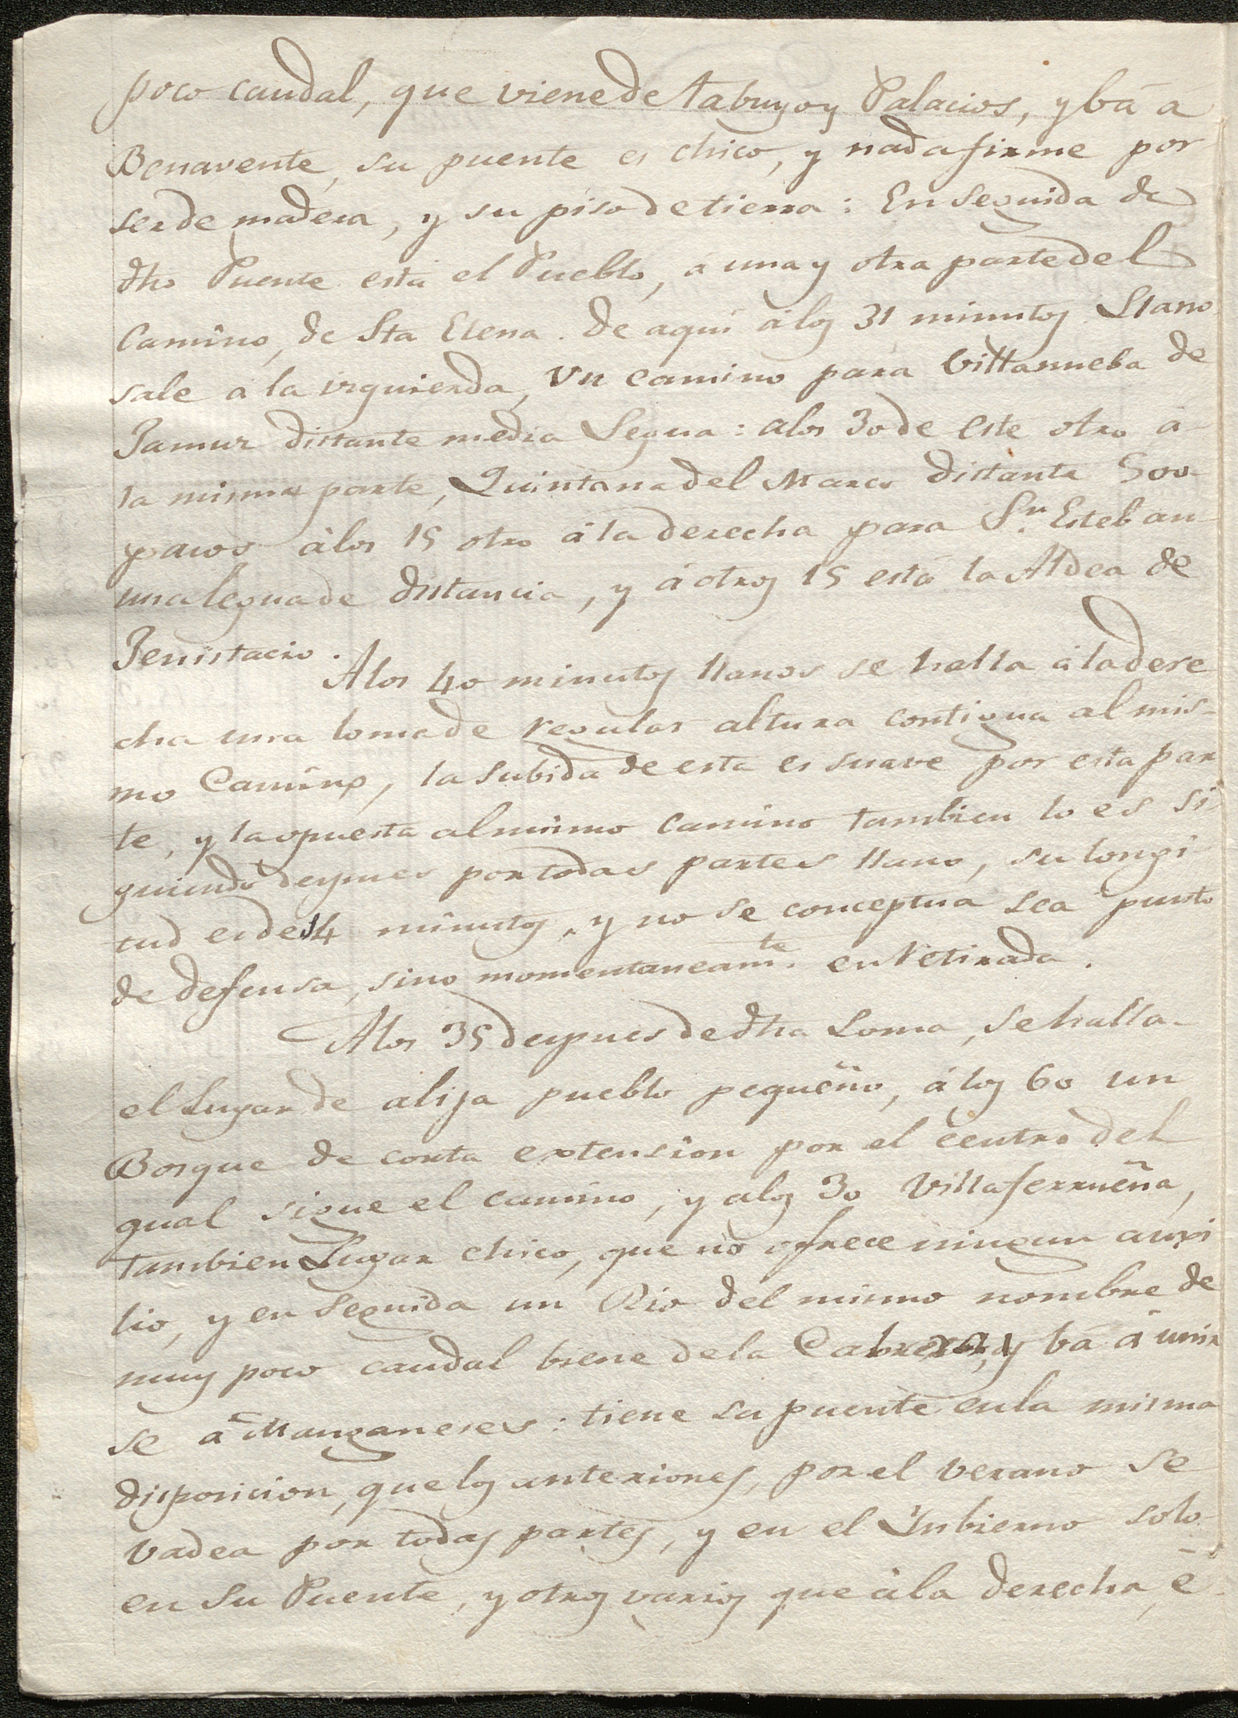 poco caudal, que viene de Tabuyo y Palacios, y bá á
Benavente, su puente es chico, y nada firme por
ser de madera, y su piso de tierra: En seguida de
dho Puente está el Pueblo, a una y otra parte del
Camino, de Sta Elena. de aquí á los 31 minutos Llano
sale a la izquierda, un camino para Villanueba de
Jamuz distante media Legua: a los 30 de este otro a
la misma parte, Quintana del Marco distante 500
pasos á los 15 otro á la derecha para Sn. Esteban
una legua de distancia, y á otros 15 está la Aldea de
Jenistacio.
A los 40 minutos llanos se halla á la dere
cha una loma de regular altura contigua al mis-
mo Camino, la subida de esta es suave por esta par
te, y la opuesta al mismo camino tambien lo es si
guiendo despues por todas partes llano, su longi
tud es de 14 minutos, y no se conceptua sea punto
de defensa, sino momentaneamte. en retirada.
A los 35 despues de dha Loma, se halla
el Lugar de alija pueblo pequeño, á los 60 un
Bosque de corta extension por el centro del
qual sigue el camino, y a los 30 Villaferrueña,
tambien Lugar chico, que no ofrece ningun auxi
lio, y en seguida un Rio del mismo nombre de
muy poco caudal biene de la Cabrera, y bá á unir
se á Manganeses: tiene su puente en la misma
disposicion, que los anteriores, por el verano se
vadea por todas partes, y en el Ynbierno solo
en su Puente, y otros varios que á la derecha, é